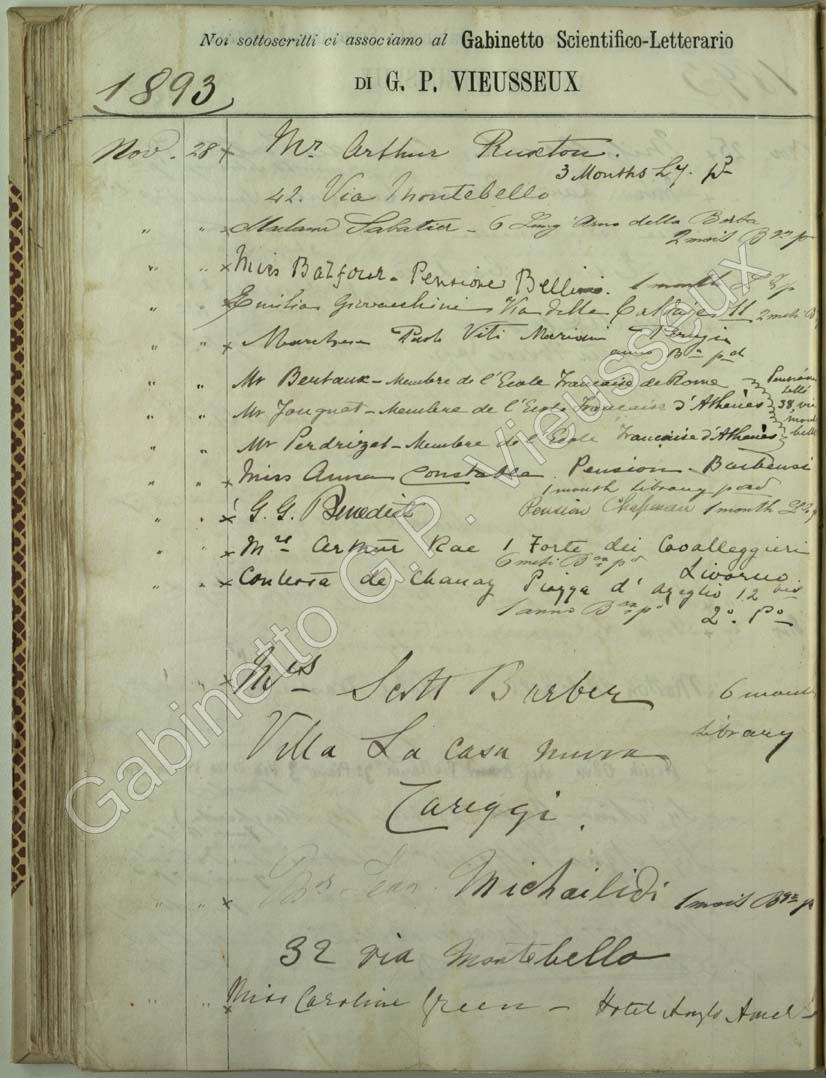 Noi sottoscritti ci associamo al Gabinetto Scientifico-Letterario
DI G. P. VIEUSSEUX
1893
Nov. 28 x Mr Arthur Ruxton.
3 Months Ly. pd
42. Via Montebello
" " x Madame Sabatier - 6 Lung Arno della
2 mois Bau p
" " x Miss Balfour - Pensione Bellini. 1 month
" " Emilia Giovacchini Via delle 11 2 mesi
" " x Marchese Paolo Viti Mariani Perugia
anno Bau pd
" " Mr Bertaux - Membre de l'Ecole Française de Rome
" " Mr Jouguet - Membre de l'Ecole Française d'Athènes 38, via
" " Mr Perdrizet - Membre de l'Ecole Française d'Athènes
" " x Miss Anna Constable Pension Barbensi
1 month library paid
" " x G. G. Benedict Pension Chapman 1 month
" " x Mrs Arthur Rae 1 Forte dei Cavalleggieri
6 mesi pd Livorno
" " x Contessa de Chanaz Piazza d'Azeglio 12 bis
1 anno pd 2o. Po
" x Mrs Scott Barber 6 month
library
Villa La Casa nuova
Careggi.
" " x Jean Michailidi 1 mois p
32 via Montebello
" " x Miss Caroline Green - Hotel Anglo Amer
Gabinetto G.P. Vieusseux